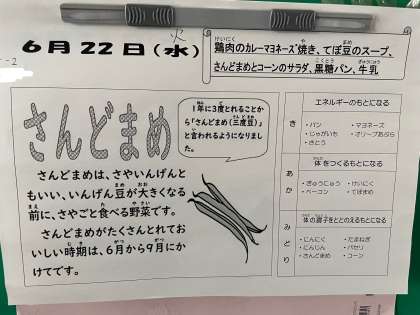 火
6月22日(水)
鶏肉のカレーマヨネーズ焼き、てぼ豆のスープ、
さんどまめとコーンのサラダ、黒糖パン、牛乳
さんどまめ
1年に3度とれることから
「さんどまめ(三度豆)」
と言われるようになりまし
た。
さんどまめは、さやいんげんと
もいい、いんげん豆が大きくなる
前に、さやごと食べる野菜です。
さんどまめがたくさんとれてお
いしい時期は、6月から9月にか
けてです。
き
エネルギーのもとになる
・パン ・マヨネーズ
・じゃがいも ・オリーブあぶら
・さとう
あか
体をつくるもとになる
・ぎゅうにゅう ・けいにく
・ベーコン ・てぼまめ
みどり
体の調子をととのえるもとになる
・にんにく ・たまねぎ
・にんじん ・パセリ
・さんどまめ ・コーン